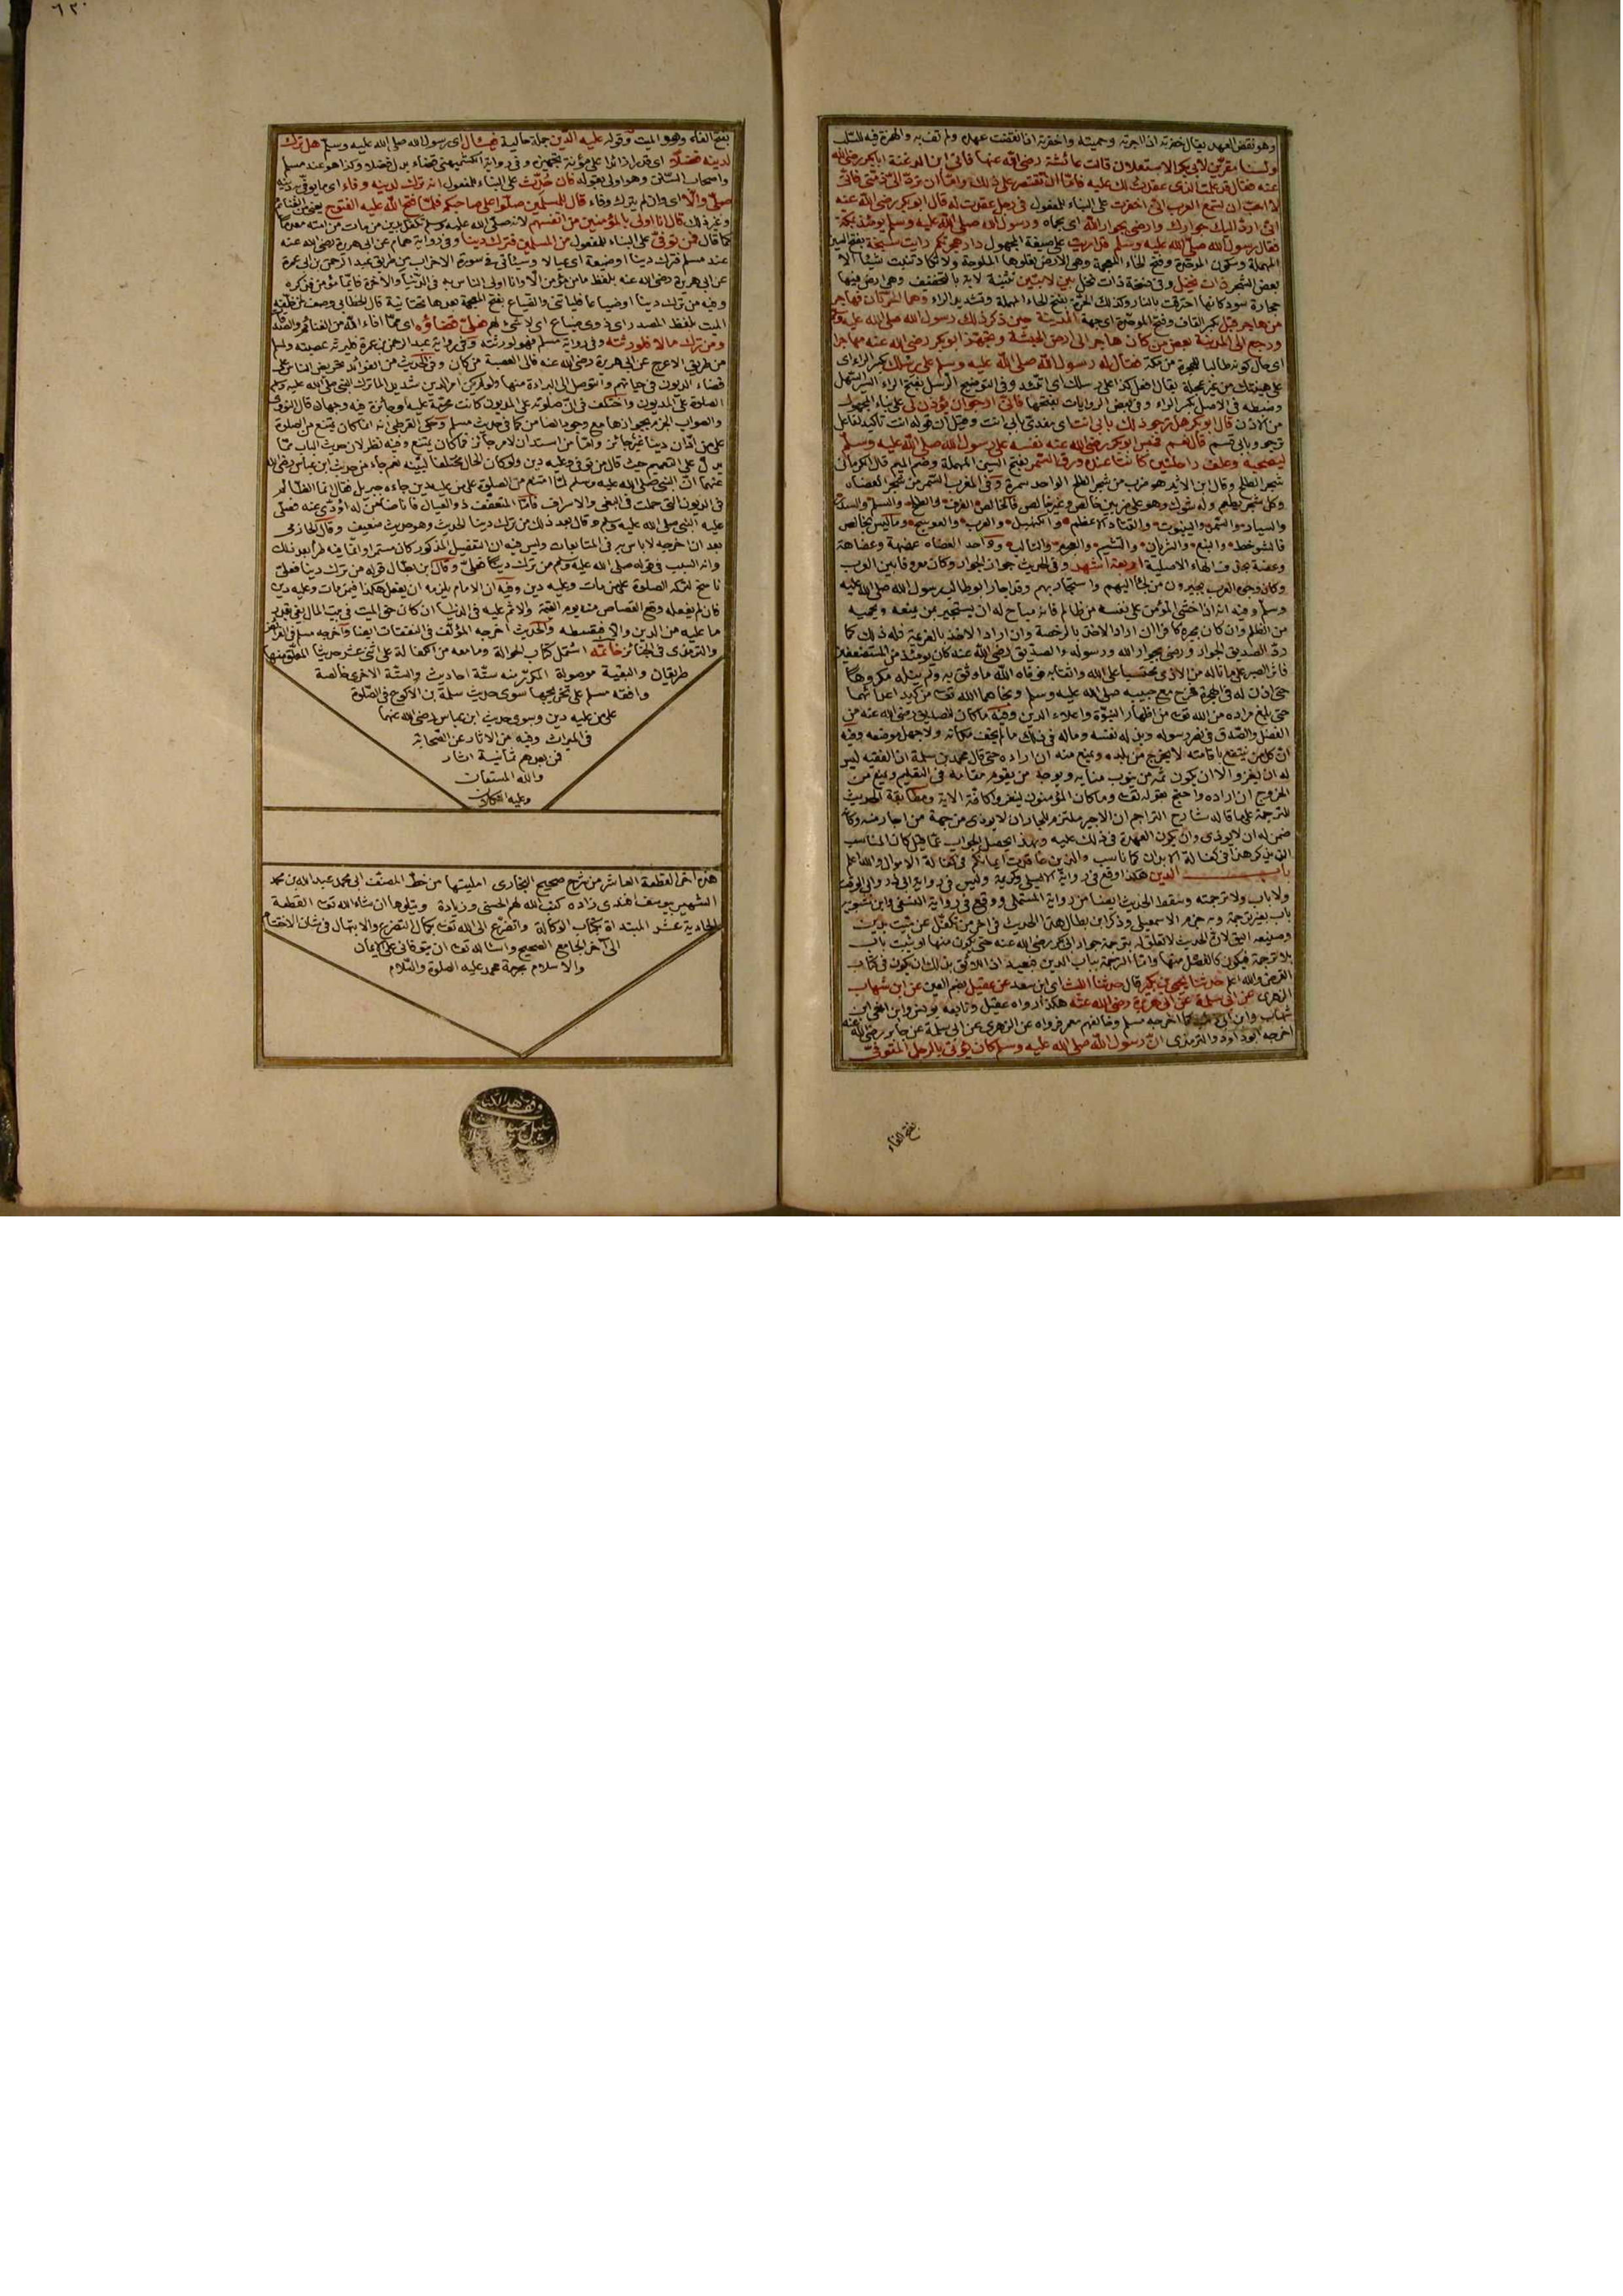 وهو نقض العهد يقال خفرته اذا اجرته وحميته واخفرته اذا نقضت عهده ولم تف به والهمزة فيه للسلب
ولسنا مقرين لابي بكر الاستعلان قالت عائشة رضي الله عنها فاتى ابن الدغنة ابا بكر رضي الله
عنه فقال قد علمت الذي عقدت لك عليه فاما ان تقتصر على ذلك واما ان ترد الي ذمتي فاني
لا احب ان تسمع العرب اني اخفرت على البناء للمفعول في رجل عقدت له قال ابو بكر رضي الله عنه
اني ارد اليك جوارك وارضى بجوار الله اى بحماه ورسول الله صلى الله عليه وسلم يومئذ بمكة
فقال رسول الله صلى الله عليه وسلم قد اريت على صيغة المجهول دار هجرتكم رايت سبخة بفتح السين
المهملة وسكون الموحدة وفتح الخاء المعجمة وهى الارض يعلوها الملوحة ولا تكاد تنبت شيئا الا
بعض الشجر ذات نخيل وفى نسخة ذات نخل بين لابتين تثنية لابة بالتخفيف وهى ارض فيها
حجارة سود كانها احترقت بالنار وكذلك الحرة بفتح الحاء المهملة وتشديد الراء وهما الحرتان فهاجر
من هاجر قبل بكسر القاف وفتح الموحدة اى جهة المدينة حين ذكر ذلك رسول الله صلى الله عليه وسلم
ورجع الى المدينة بعض من كان هاجر الى ارض الحبشة وتجهز ابو بكر رضي الله عنه مهاجرا
اى حال كونه طالبا للهجرة من مكة فقال له رسول الله صلى الله عليه وسلم على رسلك بكسر الراء اى
على هينتك من غير عجلة يقال افعل كذا على رسلك اى اتئد وفى التوضيح الرسل بفتح الراء السير السهل
وضبطه فى الاصل بكسر الراء وفى بعض الروايات بفتحها فاني ارجو ان يؤذن لي على بناء المجهول
من الاذن قال ابو بكر هل ترجو ذلك بابي انت اى مفدى بابى انت وقيل انت قوله انت تاكيد لفاعل
ترجو وبابى قسم قال نعم فحبس ابو بكر رضي الله عنه نفسه على رسول الله صلى الله عليه وسلم
ليصحبه وعلف راحلتين كانتا عنده ورق السمر بفتح السين المهملة وضم الميم قال الكرمانى
شجر الطلح وقال ابن الاثير هو ضرب من شجر الطلح الواحد سمرة وفى المغرب السمر من شجر العضاه
وكل شجر يعظم وله شوك وهو على ضربين خالص وغير خالص فالخالص الغرف والطلح والسلم والسدر
والسيال والسمر والينبوت والقتاد الاعظم والكنهبل والغرب والعوسج وما ليس بخالص
فالشوحط والنبع والشريان والنشم والعجرم والتالب وواحد العضاه عضهة وعضاهة
وعضة بحذف الهاء الاصلية اربعة اشهر وفى الحديث جواز الجوار وكان معروفا بين العرب
وكان وجوه العرب يجيرون من لجأ اليهم واستجار بهم وقد اجار ابو طالب رسول الله صلى الله عليه
وسلم وفيه انه اذا خشى المؤمن على نفسه من ظالم فانه مباح له ان يستجير بمن يمنعه ويحميه
من الظلم وان كان يجيره كافرا ان اراد الاخذ بالرخصة وان اراد الاخذ بالعزيمة فله ذلك كما
رد الصديق الجوار ورضى بجوار الله ورسوله والصديق رضي الله عنه كان يومئذ من المستضعفين
فاثر الصبر على ما ناله من الاذى محتسبا على الله واثقا به فوفاه الله ما وثق به ولم ينله مكروها
حتى اذن له فى الهجرة فخرج مع حبيبه صلى الله عليه وسلم ونجاهما الله تعالى من كيد اعدائهما
حتى بلغ مراده من الله تعالى من اظهار النبوة واعلاء الدين وفيه ما كان للصديق رضي الله عنه من
الفضل والصدق فى نصر رسوله وبذله نفسه وماله فى ذلك ما لم يخف مكانه ولا جهل موضعه وفيه
ان كل من ينتفع باقامته لا يخرج من بلده ويمنع منه ان اراده حتى قال محمد بن سلمة ان الفقيه ليس
له ان يغزو الا ان يكون ثمه من ينوب منابه ويوجد من يقوم مقامه فى التعليم ويمنع من
الخروج ان اراده واحتج بقوله تعالى وما كان المؤمنون لينفروا كافة الاية ومطابقة الحديث
للترجمة على ما قاله شارح التراجم ان الاجير ملتزم للجار ان لا يوذى من جهة من اجار منه وكانه
ضمن له ان لا يوذى وان يكون العهدة فى ذلك عليه وبهذا يحصل الجواب عما قيل كان المناسب
ان يذكر هذا فى كفالة الابدان كما ناسب والذين عاقدت ايمانكم فى كفالة الاموال والله اعلم
باب الدين هكذا وقع فى رواية الاصيلى وكريمة وليس فى رواية ابى ذر وابى الوقت
ولا باب ولا ترجمة وسقط الحديث ايضا من رواية المستملى ووقع فى رواية النسفى وابن شبويه
باب بغير ترجمة وبه جزم الاسمعيلى وذكر ابن بطال هذا الحديث فى اخر من تكفل عن ميت بدين
وصنيعه اليق لان الحديث لا تعلق له بترجمة جوار ابى بكر رضي الله عنه حتى يكون منها او يثبت باب
بلا ترجمة فيكون كالفصل منها واما الترجمة بباب الدين فبعيد اذ اللائق بذلك ان يكون فى كتاب
القرض والله اعلم حدثنا يحيى بن بكير قال حدثنا الليث اى ابن سعد عن عقيل بضم العين عن ابن شهاب
الزهرى عن ابي سلمة عن ابي هريرة رضي الله عنه هكذا رواه عقيل وتابعه يونس وابن اخى ابن
شهاب وابن ابى ذئب كما اخرجه مسلم وخالفهم معمر فرواه عن الزهرى عن ابى سلمة عن جابر رضي الله عنه
اخرجه ابو داود والترمذى ان رسول الله صلى الله عليه وسلم كان يؤتى بالرجل المتوفى
بفتح الفاء
٦٢٠
بفتح الفاء وهو الميت وقوله عليه الدين جملة حالية فيسال اى رسول الله صلى الله عليه وسلم هل ترك
لدينه فضلا اى قدرا زائدا على مؤنة تجهيزه وفى رواية الكشميهنى قضاء بدل فضلا وكذا هو عند مسلم
واصحاب السنن وهو اولى بقوله فان حدث على البناء للمفعول انه ترك لدينه وفاء اى ما يوفى به دينه
صلى والا اى وان لم يترك وفاء قال للمسلمين صلوا على صاحبكم فلما فتح الله عليه الفتوح يعنى من الغنائم
وغير ذلك قال انا اولى بالمؤمنين من انفسهم لانه صلى الله عليه وسلم تكفل بدين من مات من امته معدما
كما قال فمن توفي على البناء للمفعول من المسلمين فترك دينا وفى رواية همام عن ابى هريرة رضي الله عنه
عند مسلم فترك دينا او ضيعة اى عيالا وسياتى فى سورة الاحزاب من طريق عبد الرحمن بن ابى عمرة
عن ابى هريرة رضي الله عنه بلفظ ما من مؤمن الا وانا اولى الناس به فى الدنيا والاخرة فايما مؤمن فذكره
وفيه من ترك دينا او ضياعا فلياتنى والضياع بفتح المعجمة بعدها تحتانية قال الخطابى وصف لمن خلفه
الميت بلفظ المصدر اى ذوى ضياع اى لا شئ لهم فعلي قضاؤه اى مما افاء الله من الغنائم والصدقات
ومن ترك مالا فلورثته وفى رواية مسلم فهو لورثته وفى رواية عبد الرحمن بن عمرة فليرثه عصبته ولمسلم
من طريق الاعرج عن ابى هريرة رضي الله عنه فالى العصبة من كان وفى الحديث من الفوائد تحريض الناس على
قضاء الديون فى حياتهم والتوصل الى البراءة منها ولو لم يكن امر الدين شديدا لما ترك النبى صلى الله عليه وسلم
الصلوة على المديون واختلف فى ان صلوته على المديون كانت محرمة عليه او جائزة فيه وجهان قال النووى
والصواب الجزم بجوازها مع وجود الضامن كما فى حديث مسلم وحكى القرطبى انه انما كان يمتنع من الصلوة
على من ادان دينا غير جائز واما من استدان لامر جائز فما كان يمتنع وفيه نظر لان حديث الباب مما
يدل على التعميم حيث قال من توفى وعليه دين ولو كان الحال مختلفا لبينه نعم جاء من حديث ابن عباس رضي الله
عنهما ان النبى صلى الله عليه وسلم لما امتنع من الصلوة على من عليه دين جاءه جبريل فقال انما الظالم
فى الديون التى حملت فى البغى والاسراف فاما المتعفف ذو العيال فانا ضامن له اؤدى عنه فصلى
عليه النبى صلى الله عليه وسلم وقال بعد ذلك من ترك دينا الحديث وهو حديث ضعيف وقال الحازمى
بعد ان اخرجه لا باس به فى المتابعات وليس فيه ان التفصيل المذكور كان مستمرا وانما فيه طرأ بعد ذلك
وانه السبب فى قوله صلى الله عليه وسلم من ترك دينا فعلى وقال ابن بطال قوله من ترك دينا فعلى
ناسخ لتركه الصلوة على من مات وعليه دين وفيه ان الامام يلزمه ان يفعل هكذا فيمن مات وعليه دين
فان لم يفعله وقع القصاص منه يوم القيمة والاثم عليه فى الدنيا ان كان حق الميت فى بيت المال يفى بقدر
ما عليه من الدين والا فبقسطه والحديث اخرجه المؤلف فى النفقات ايضا واخرجه مسلم فى الفرائض
والترمذى فى الجنائز خاتمة اشتمل كتاب الحوالة وما معه من الكفالة على اثنى عشر حديثا المعلق منها
طريقان والبقية موصولة المكرر منه ستة احاديث والستة الاخرى خالصة
وافقه مسلم على تخريجها سوى حديث سلمة بن الاكوع فى الصلوة
على من عليه دين وسوى حديث ابن عباس رضي الله عنهما
فى الميراث وفيه من الاثار عن الصحابة
فمن بعدهم ثمانية اثار
والله المستعان
وعليه التكلان
هذه اخر القطعة العاشرة من شرح صحيح البخارى امليتها من خط المصنف ابى محمد عبد الله بن محمد
الشهير بيوسف افندى زاده كتب الله لهم الحسنى وزيادة ويتلوها ان شاء الله تعالى القطعة
الحادية عشر المبتداة بكتاب الوكالة واتضرع الى الله تعالى بكمال التضرع والابتهال فى شان الاختتام
الى اخر الجامع الصحيح واسئالله تعالى ان يتوفانى على الايمان
والاسلام بحرمة محمد عليه الصلوة والسلام